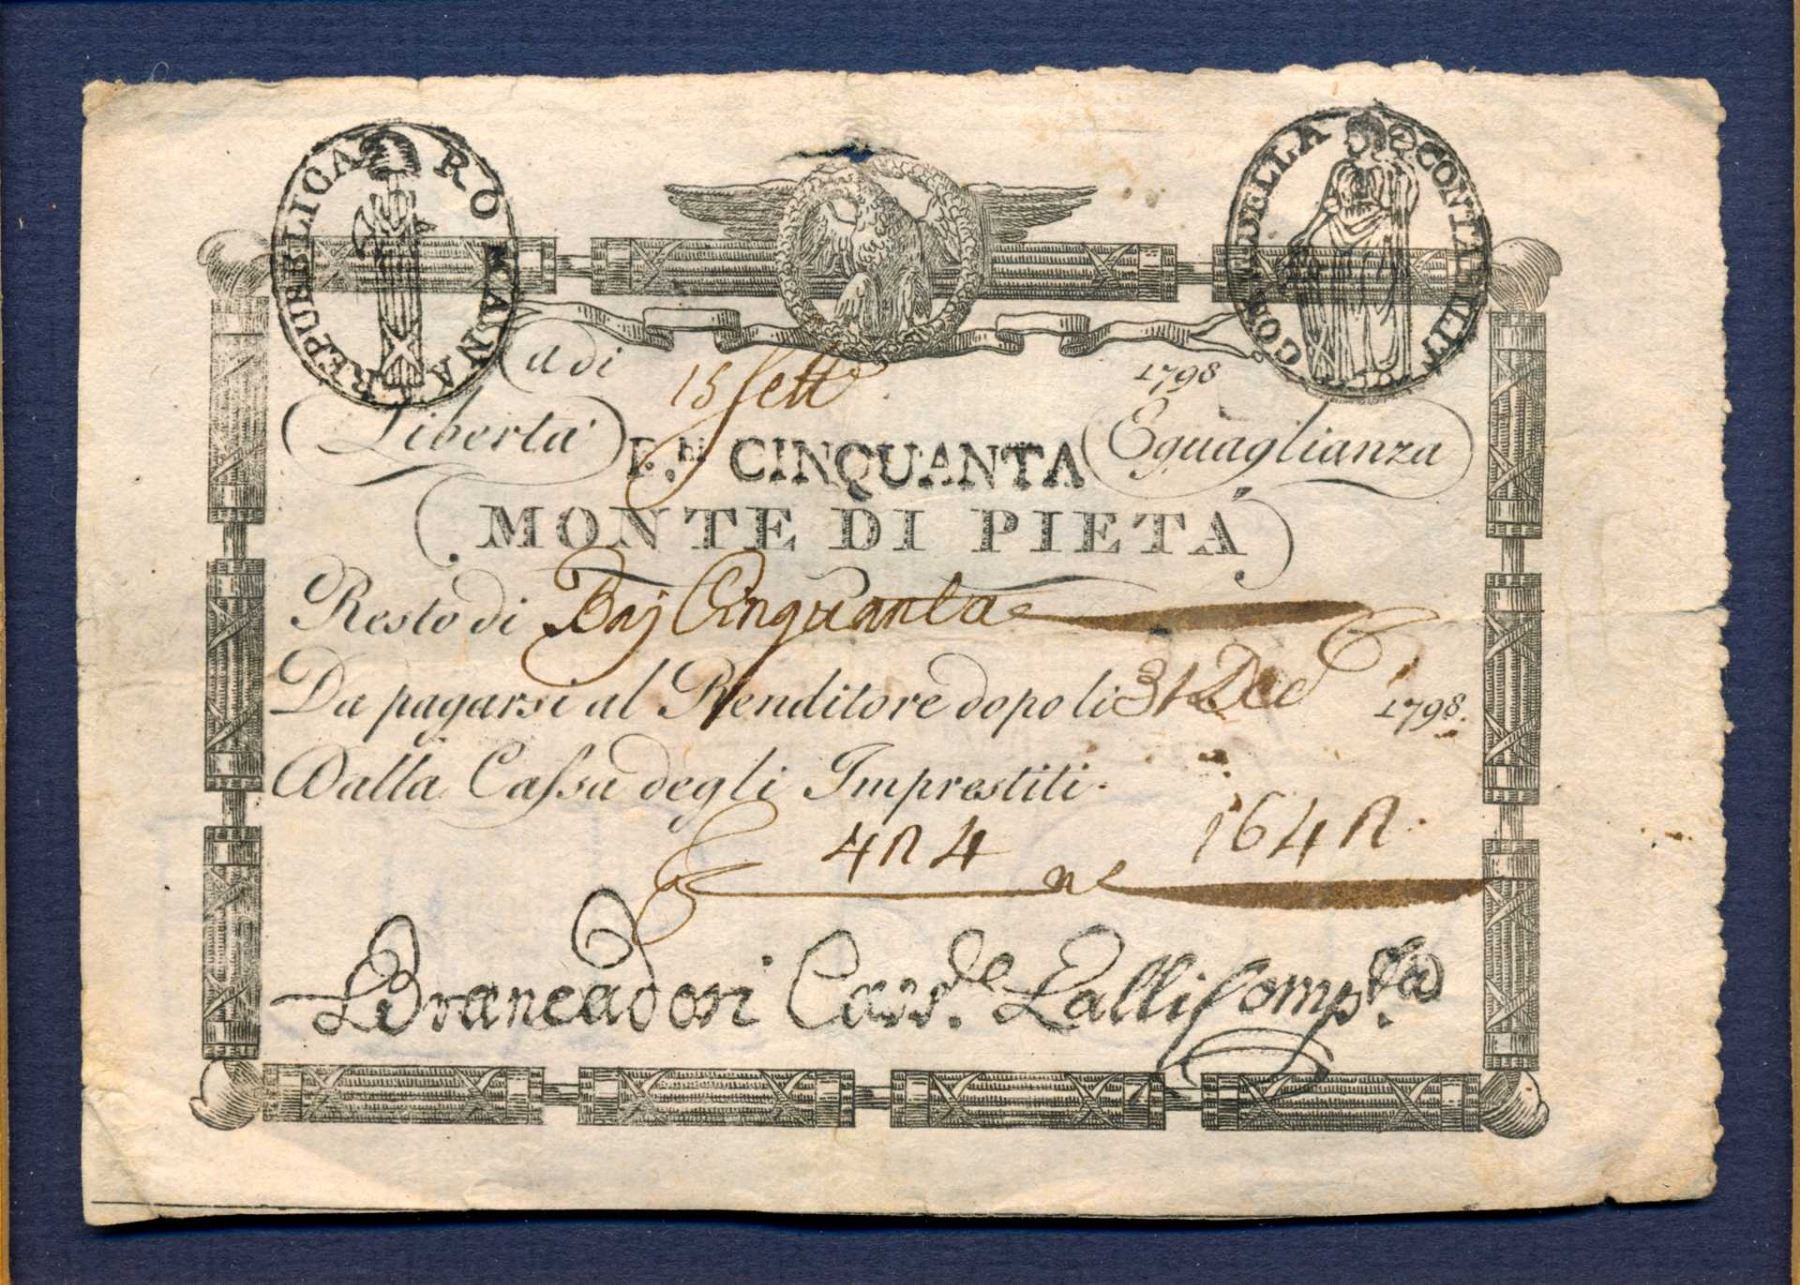 REPUBLICA ROMANA
COM. DELLA CONTABILIT
a di 15 Sett.e 1798
Libertà Eguaglianza
CINQUANTA
MONTE DI PIETÀ
Resto di Baj Cinquanta
Da pagarsi al Renditore dopo li 31 Dec 1798.
Dalla Cassa degli Imprestiti.
Brancadori Cass.re Lalli Comp.ta